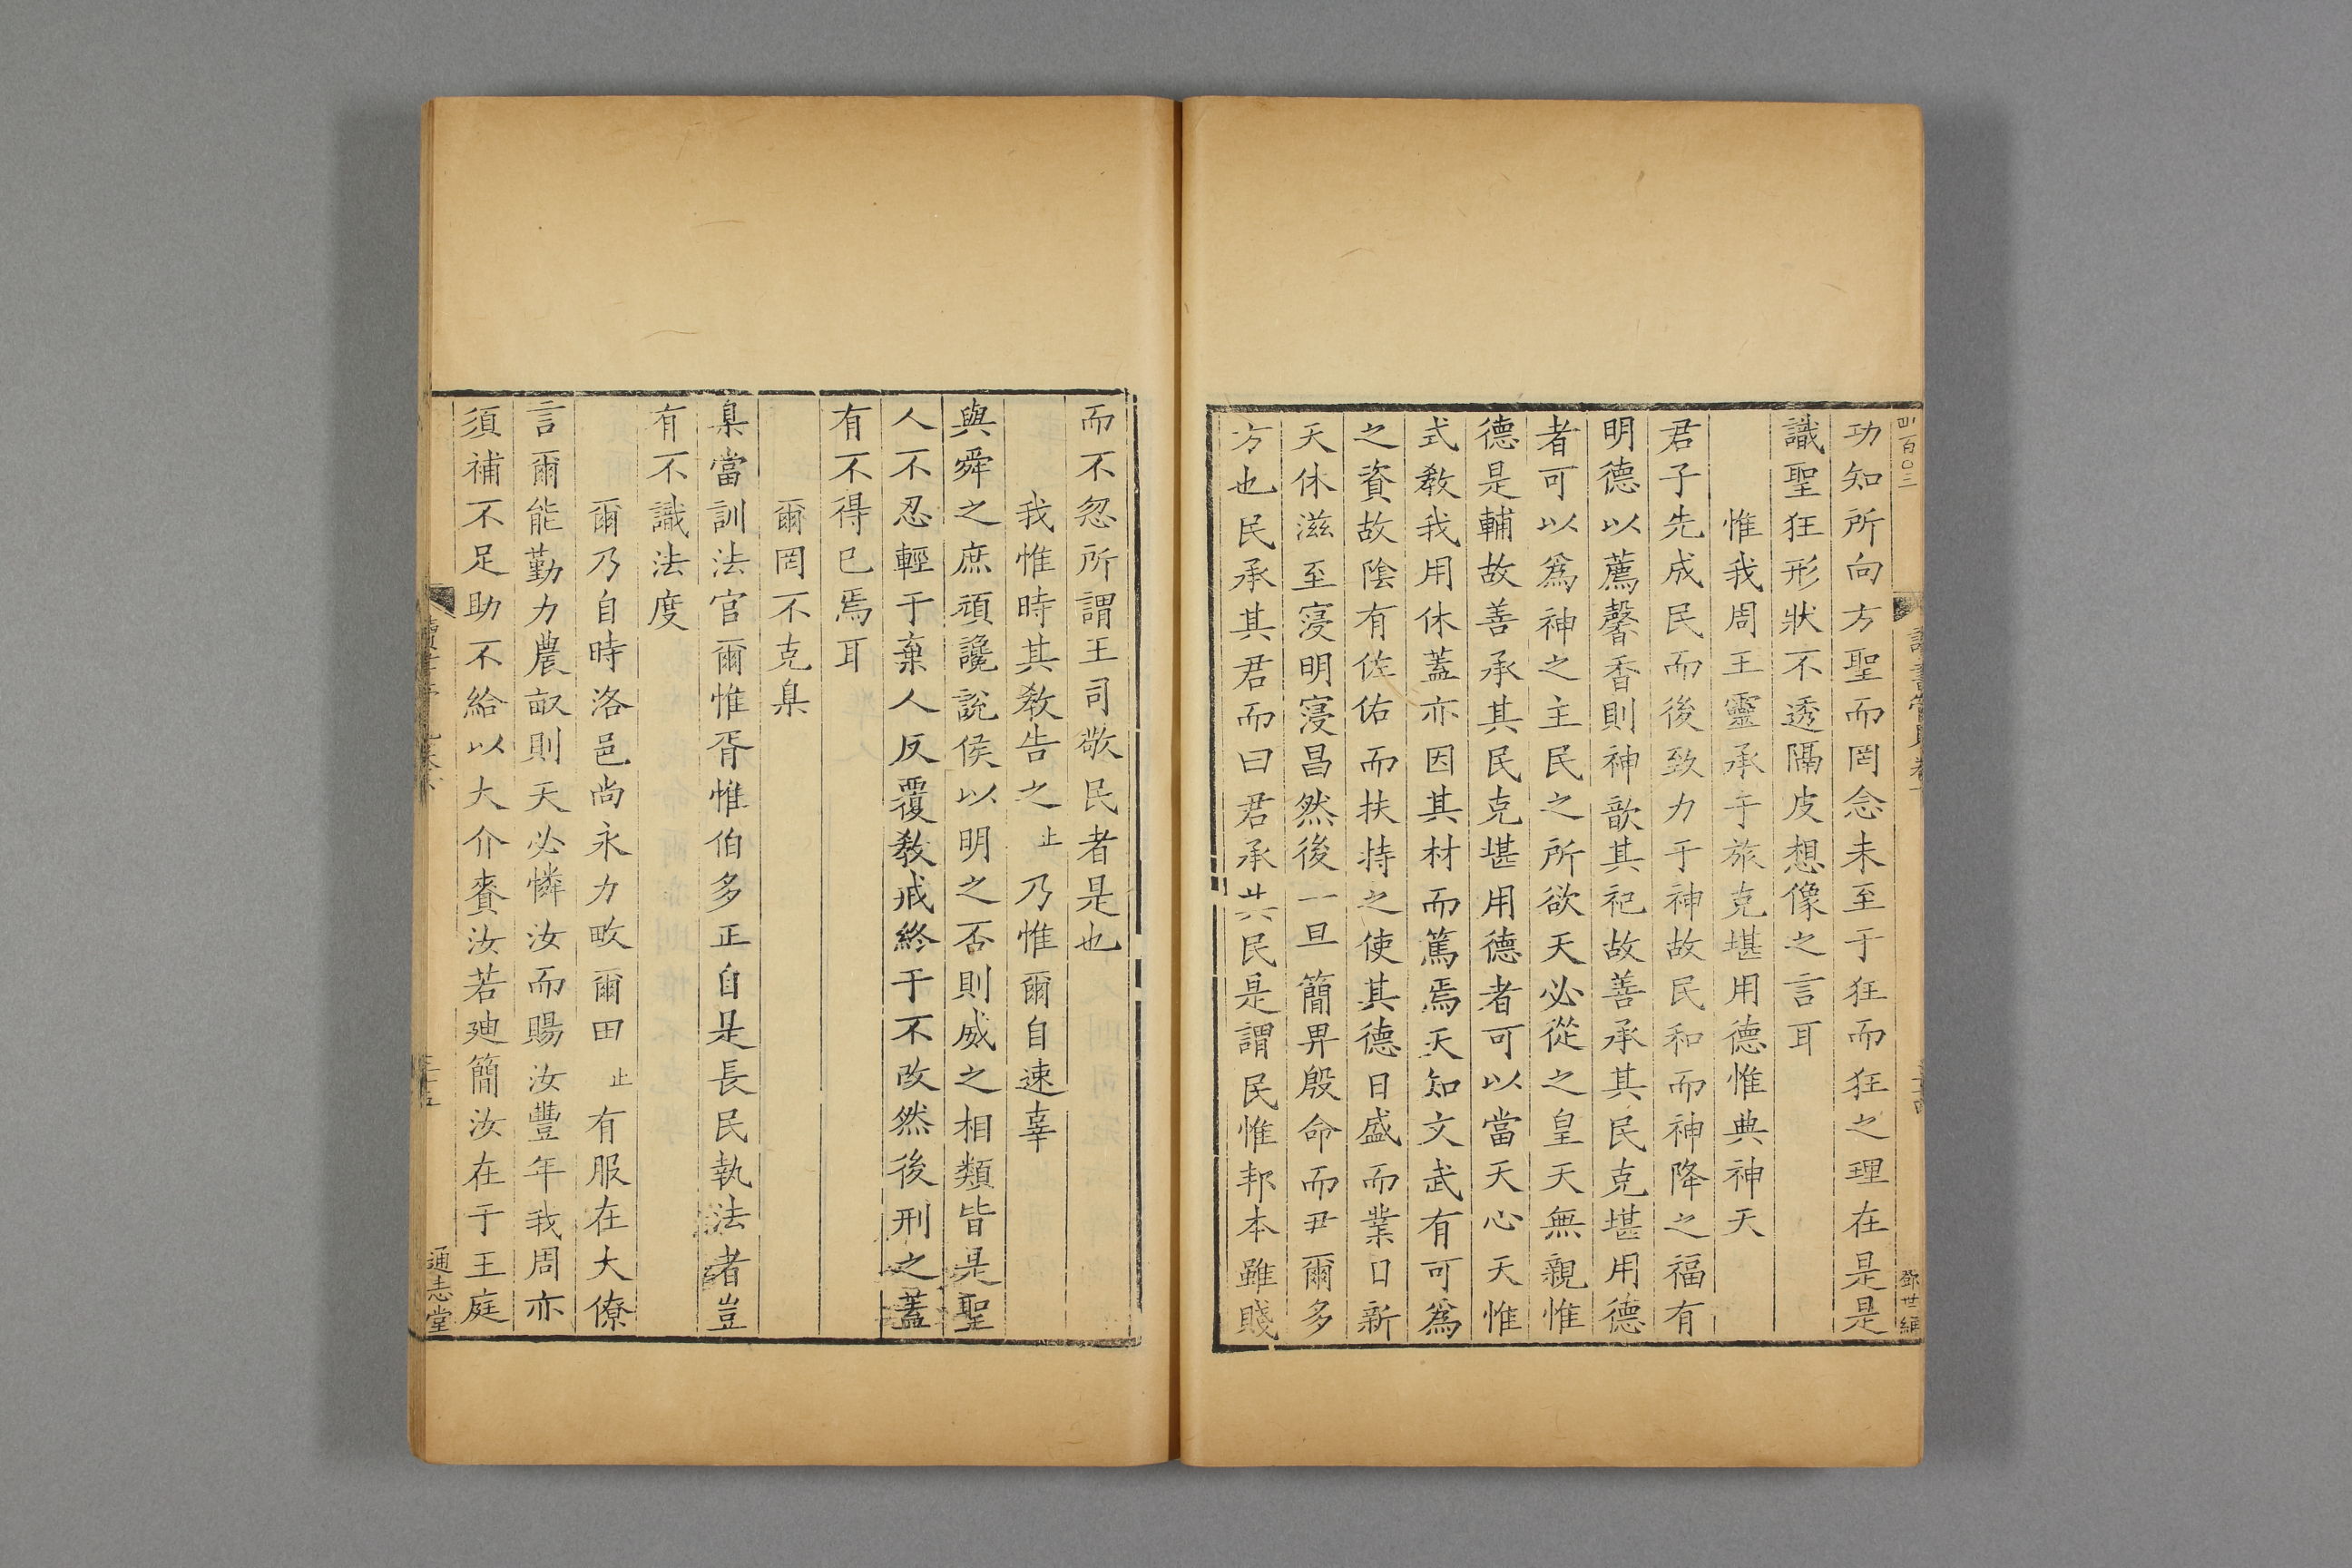 四百〇三
鄧世維
功知所向方聖而罔念未至于狂而狂之理在是是
識聖狂形狀不透隔皮想像之言耳
惟我周王靈承于旅克堪用德惟典神天
君子先成民而後致力于神故民和而神降之福有
明德以薦馨香則神歆其祀故善承其民克堪用德
者可以為神之主民之所欲天必從之皇天無親惟
德是輔故善承其民克堪用德者可以當天心天惟
式敎我用休蓋亦因其材而篤焉天知文武有可爲
之資故陰有佐佑而扶持之使其德日盛而業日新
天休滋至寖明寖昌然後一旦簡畀殷命而尹爾多
方也民承其君而曰君承其民是謂民惟邦本雖賤
而不忽所謂王司敬民者是也
我惟時其敎告之止乃惟爾自速辜
與舜之庶頑讒說侯以明之否則威之相類皆是聖
人不忍輕于棄人反覆敎戒終于不改然後刑之蓋
有不得已焉耳
爾罔不克臬
臬當訓法官爾惟胥惟伯多正自是長民執法者豈
有不識法度
爾乃自時洛邑尚永力畋爾田止有服在大僚
言爾能勤力農畝則天必憐汝而賜汝豐年我周亦
須補不足助不給以大介賚汝若廸簡汝在于王庭
通志堂